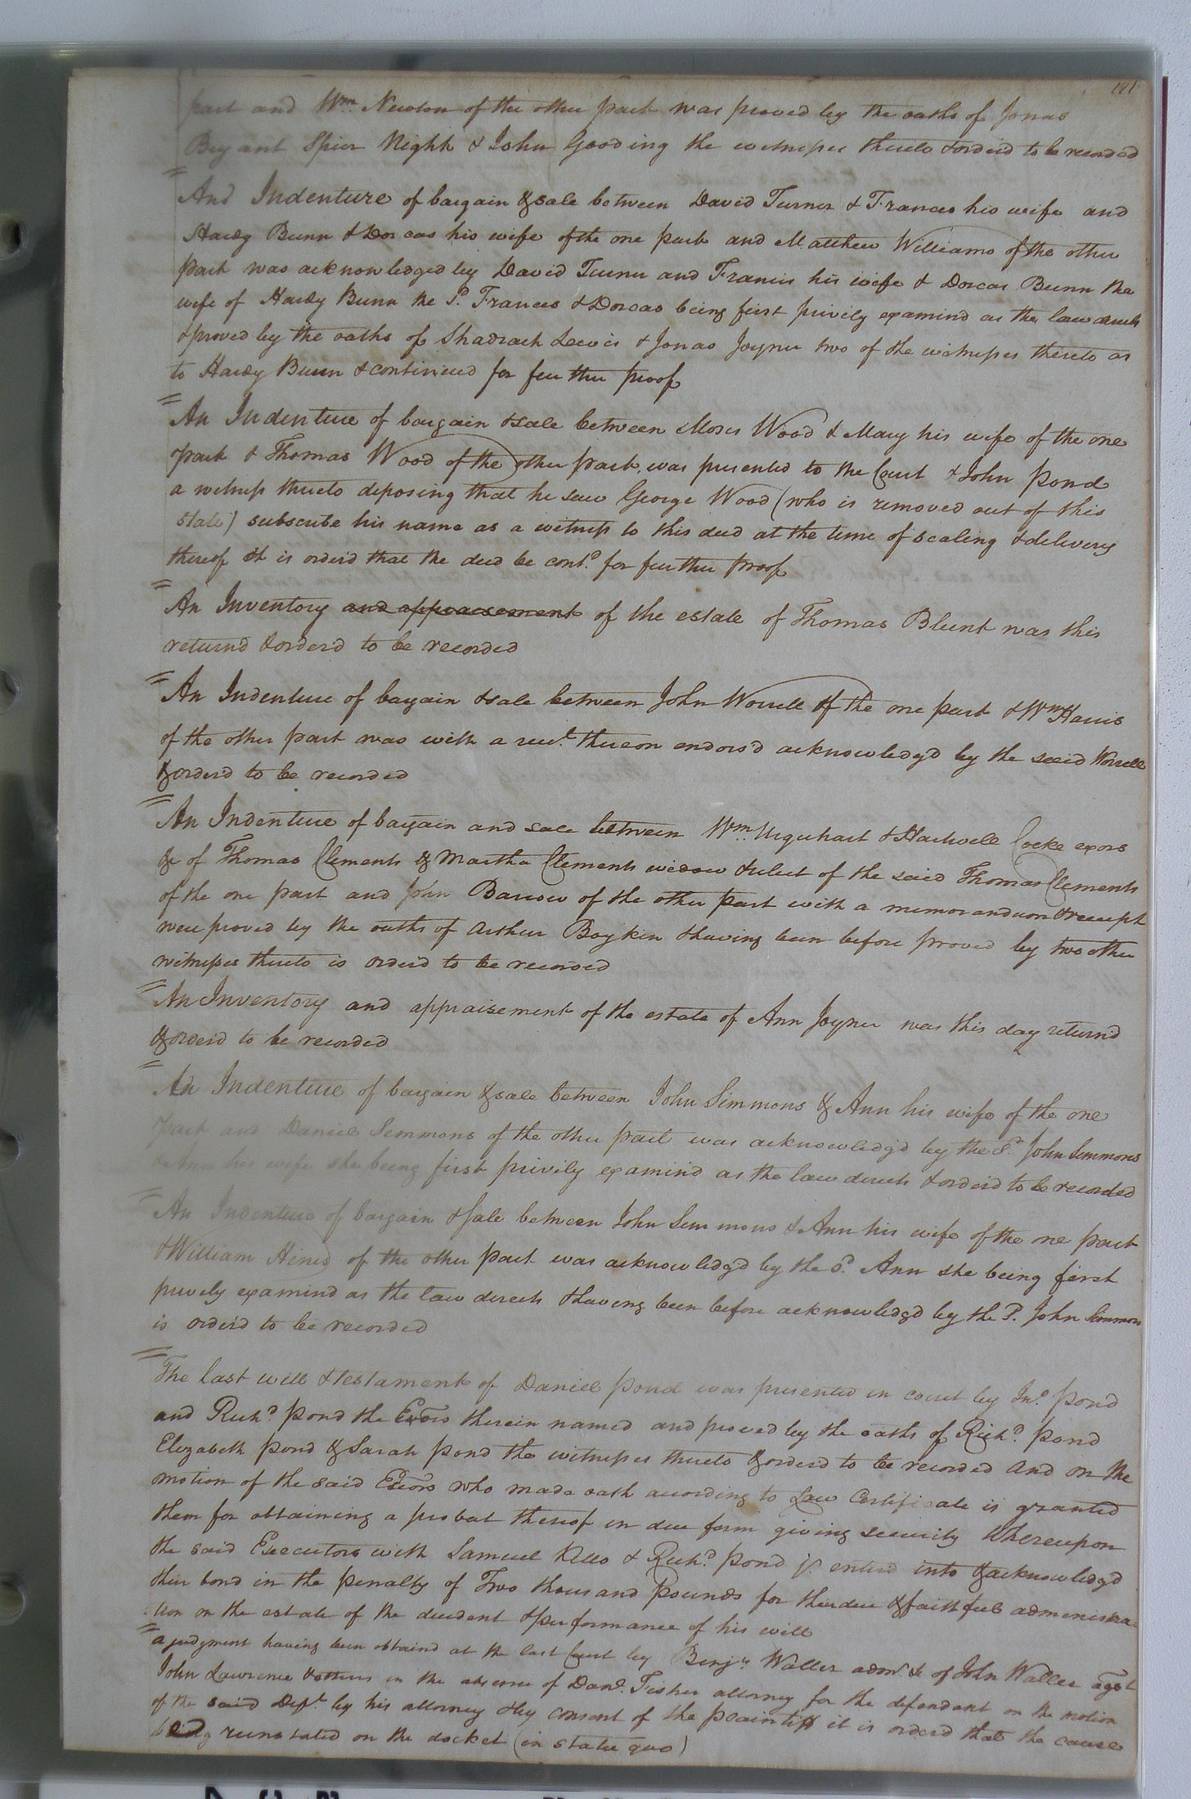 part and Wm. Newton of the other part was proved by the oaths of Jonas
Bryant Spier Night & John Gooding the witnesses thereto & orderd to be recorded
And Indenture of bargain & sale between David Turner & Frances his wife and
Hardy Bunn & Dorcas his wife of the one part and Matthew Williams of the other
part was acknowledged by David Turner and Francis his wife & Dorcas Bunn the
wife of Hardy Bunn the Sd. Frances & Dorcas being first privily examind as the law directs
& proved by the oaths of Shadrach Lewis & Jonas Joyner two of the witnesses thereto as
to Hardy Bunn & continued for further proof
An Indenture of bargain & sale between Moses Wood & Mary his wife of the one
part & Thomas Wood of the other part was presented to the Court & John Pond
a witness thereto deposing that he saw George Wood (who is removed out of this
State) subscribe his name as a witness to this deed at the time of sealing & delivery
thereof it is orderd that the deed be contd. for further proof
An Inventory and appraisement of the estate of Thomas Blunt was this
returnd & orderd to be recorded
An Indenture of bargain & sale between John Worrell of the one part & Wm Harris
of the other part was with a rect. thereon endors'd acknowledg'd by the said Worrell
& orderd to be recorded
An Indenture of bargain and sale between Wm. Urquhart & Hartwell Cocke exors
&c of Thomas Clements & Martha Clements widow & relict of the said Thomas Clements
of the one part and John Barrow of the other part with a memorandum & receipt
were proved by the oaths of Arthur Boykin & having been before proved by two other
witnesses thereto is orderd to be recorded
An Inventory and appraisement of the estate of Ann Joyner was this day returnd
& orderd to be recorded
An Indenture of bargain & sale between John Simmons & Ann his wife of the one
part and Daniel Simmons of the other part was acknowledg'd by the Sd. John Simmons
& Ann his wife she being first privily examind as the law directs & orderd to be recorded
An Indenture of bargain & sale between John Simmons & Ann his wife of the one part
& William Hines of the other part was acknowledgd by the Sd. Ann she being first
privily examind as the law directs & having been before acknowledgd by the Sd. John Simmons
is orderd to be recorded
The last will & testament of Daniel Pond was presented in court by Jno. Pond
and Richd. Pond the Exors therein named and proved by the oaths of Richd. Pond
Elizabeth Pond & Sarah Pond the witnesses thereto & orderd to be recorded And on the
motion of the said Exors who made oath according to Law Certificate is granted
them for obtaining a probat thereof in due form giving security Whereupon
the said Executors with Samuel Kello & Richd. Pond entered into & acknowledgd
their bond in the penalty of Two thousand pounds for their due & faithful administra
tion on the estate of the decedent & performance of his will
a judgment having been obtaind at the last Court by Benja. Waller admr. &c of John Waller agst
John Lawrence & others in the absence of Danl. Fisher attorney for the defendant on the motion
of the said Deft. by his attorney & by consent of the plaintiff it is orderd that the cause
be reinstated on the docket (in statu quo)